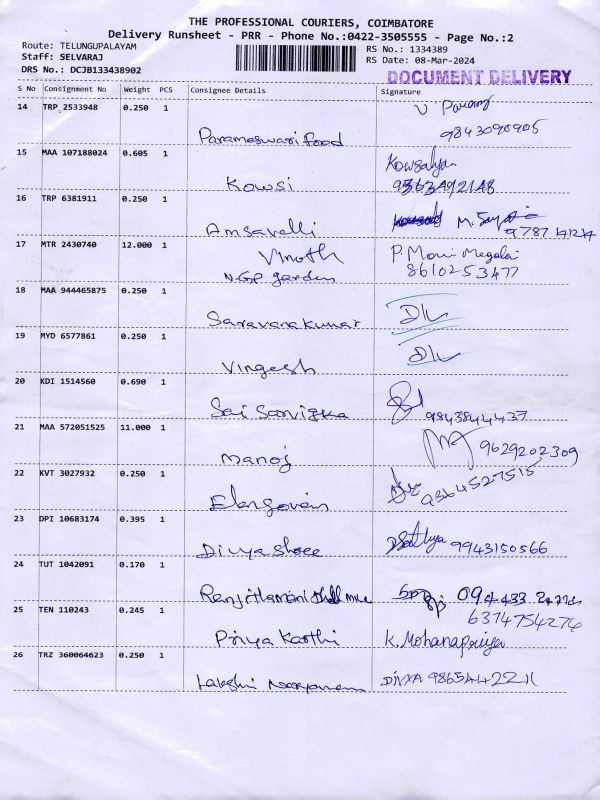 THE PROFESSIONAL COURIERS, COIMBATORE
Delivery Runsheet - PRR - Phone No.:0422-3505555 - Page No.:2
Route: TELUNGUPALAYAM
RS No.: 1334389
Staff: SELVARAJ
RS Date: 08-Mar-2024
DRS No.: DCJB133438902
DOCUMENT DELIVERY
S No Consignment No Weight PCS Consignee Details Signature
14 TRP 2533948 0.250 1
9843090905
Parameswari food
15 MAA 107188024 0.605 1 Kowsalya
Kowsi 9363492148
16 TRP 6381911 0.250 1
Amsavelli
17 MTR 2430740 12.000 1 Vinoth P. Mani Megalai
N.G.P garden 8610253477
18 MAA 944465875 0.250 1
Saravanakumar
19 MYD 6577861 0.250 1
Vingesh
20 KDI 1514560 0.690 1
Sai Sanvigka 9843844437
21 MAA 572051525 11.000 1
Manoj 9629202309
22 KVT 3027932 0.250 1
Elangovan 9364527515
23 DPI 10683174 0.395 1
Divya Shree Sathya 9943150566
24 TUT 1042091 0.170 1
Ranjithamani
6374754276
25 TEN 110243 0.245 1
Priya Karthi K. Mohanapriya
26 TRZ 360064623 0.250 1
Lakshi Narayanan DIVYA